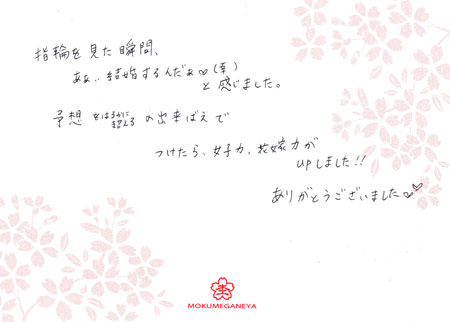 指輪を見た瞬間、
あぁ..結婚するんだぁ♡(幸)
と感じました。
予想をはるかに超えるの出来ばえで
つけたら、女子力、花嫁力が
upしました!!
ありがとうございました♡♡
MOKUMEGANEYA